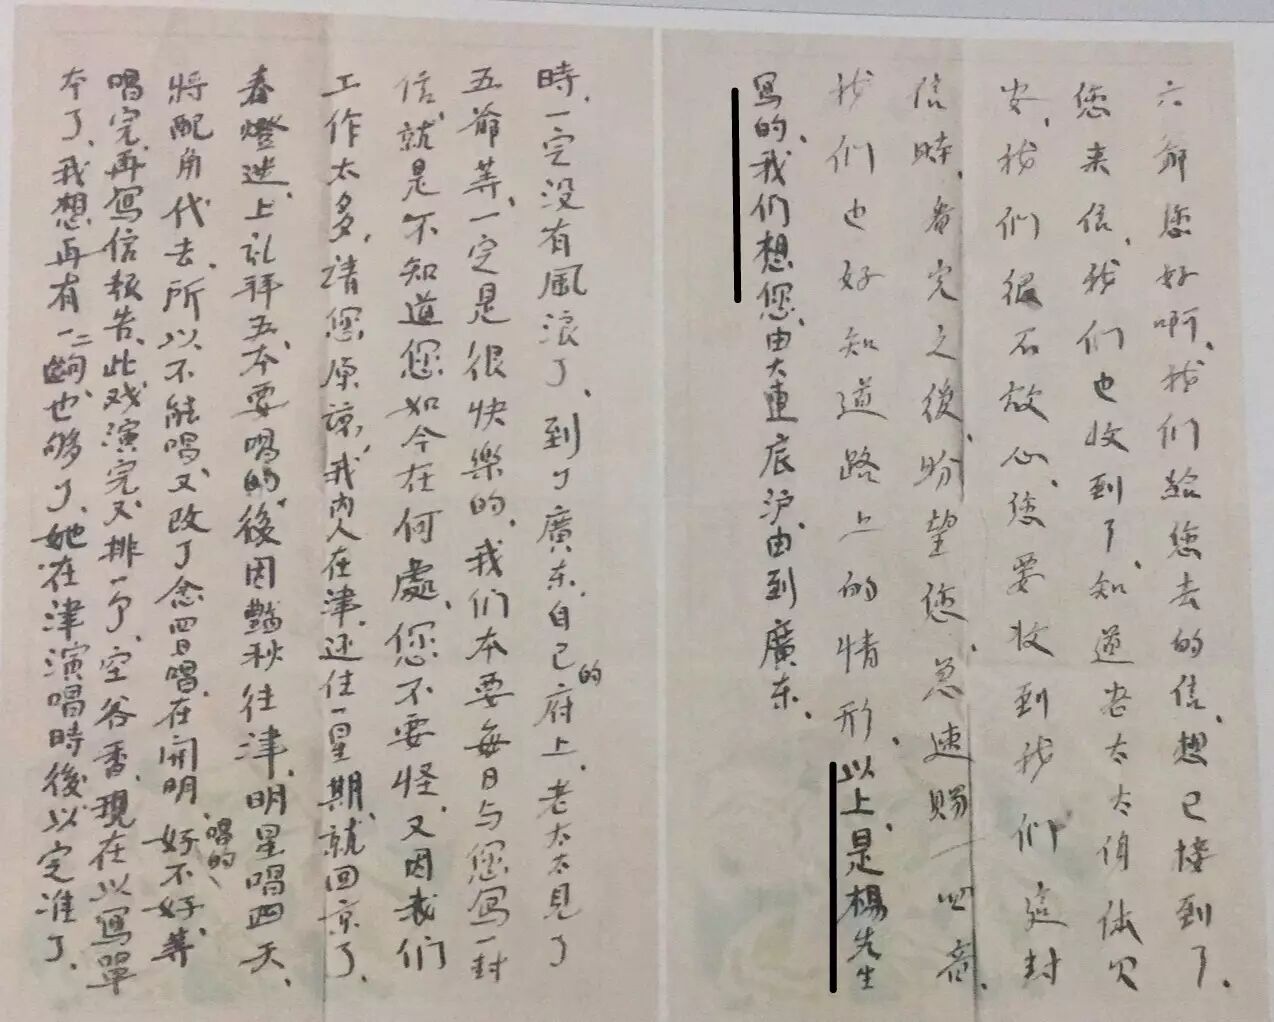 六爺您好啊、我们給您去的信、想已接到了、
您来信、我们也收到了、知道老太太伯体欠
安、我们很不放心、您要收到我们這封
信時、看完之後、盼望您、急速賜一回音、
我们也好知道路上的情形、以上是楊先生
写的、我们想您、由大連底沪、由到廣东、
時、一定没有風浪了、到了廣东、自己的府上、老太太見了
五爺等、一定是很快樂的、我们本要每日与您写一封
信、就是不知道您如今在何處、您不要怪、又因我们
工作太多、請您原諒、我内人在津、还住一星期、就回京了、
春燈迷、上礼拜五、本要唱的、後因豔秋往津、明星唱四天、
將配角代去、所以不能唱、又改了念四日唱、在開明、唱的好不好等、
唱完、再写信報告、此戏演完、又排一齣、空谷香、現在以写單
本了、我想再有一二齣也够了、她在津演唱時後、以定准了、